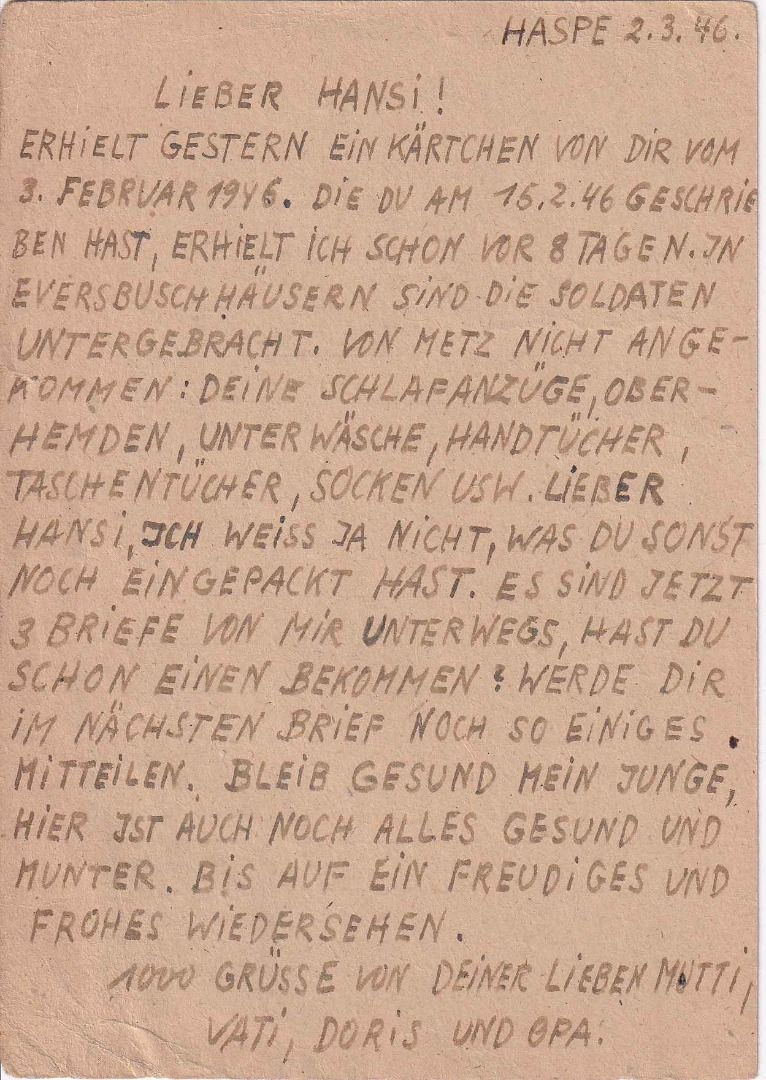 HASPE 2.3.46.
LIEBER HANSI!
ERHIELT GESTERN EIN KÄRTCHEN VON DIR VOM
3. FEBRUAR 1946. DIE DU AM 15.2.46 GESCHRIE
BEN HAST, ERHIELT ICH SCHON VOR 8 TAGEN. IN
EVERSBUSCHHÄUSERN SIND DIE SOLDATEN
UNTERGEBRACHT. VON METZ NICHT ANGE-
KOMMEN: DEINE SCHLAFANZÜGE, OBER-
HEMDEN, UNTERWÄSCHE, HANDTÜCHER,
TASCHENTÜCHER, SOCKEN USW. LIEBER
HANSI, ICH WEISS JA NICHT, WAS DU SONST
NOCH EINGEPACKT HAST. ES SIND JETZT
3 BRIEFE VON MIR UNTERWEGS, HAST DU
SCHON EINEN BEKOMMEN? WERDE DIR
IM NÄCHSTEN BRIEF NOCH SO EINIGES
MITTEILEN. BLEIB GESUND MEIN JUNGE,
HIER IST AUCH NOCH ALLES GESUND UND
MUNTER. BIS AUF EIN FREUDIGES UND
FROHES WIEDERSEHEN.
1000 GRÜSSE VON DEINER LIEBEN MUTTI,
VATI, DORIS UND OPA.